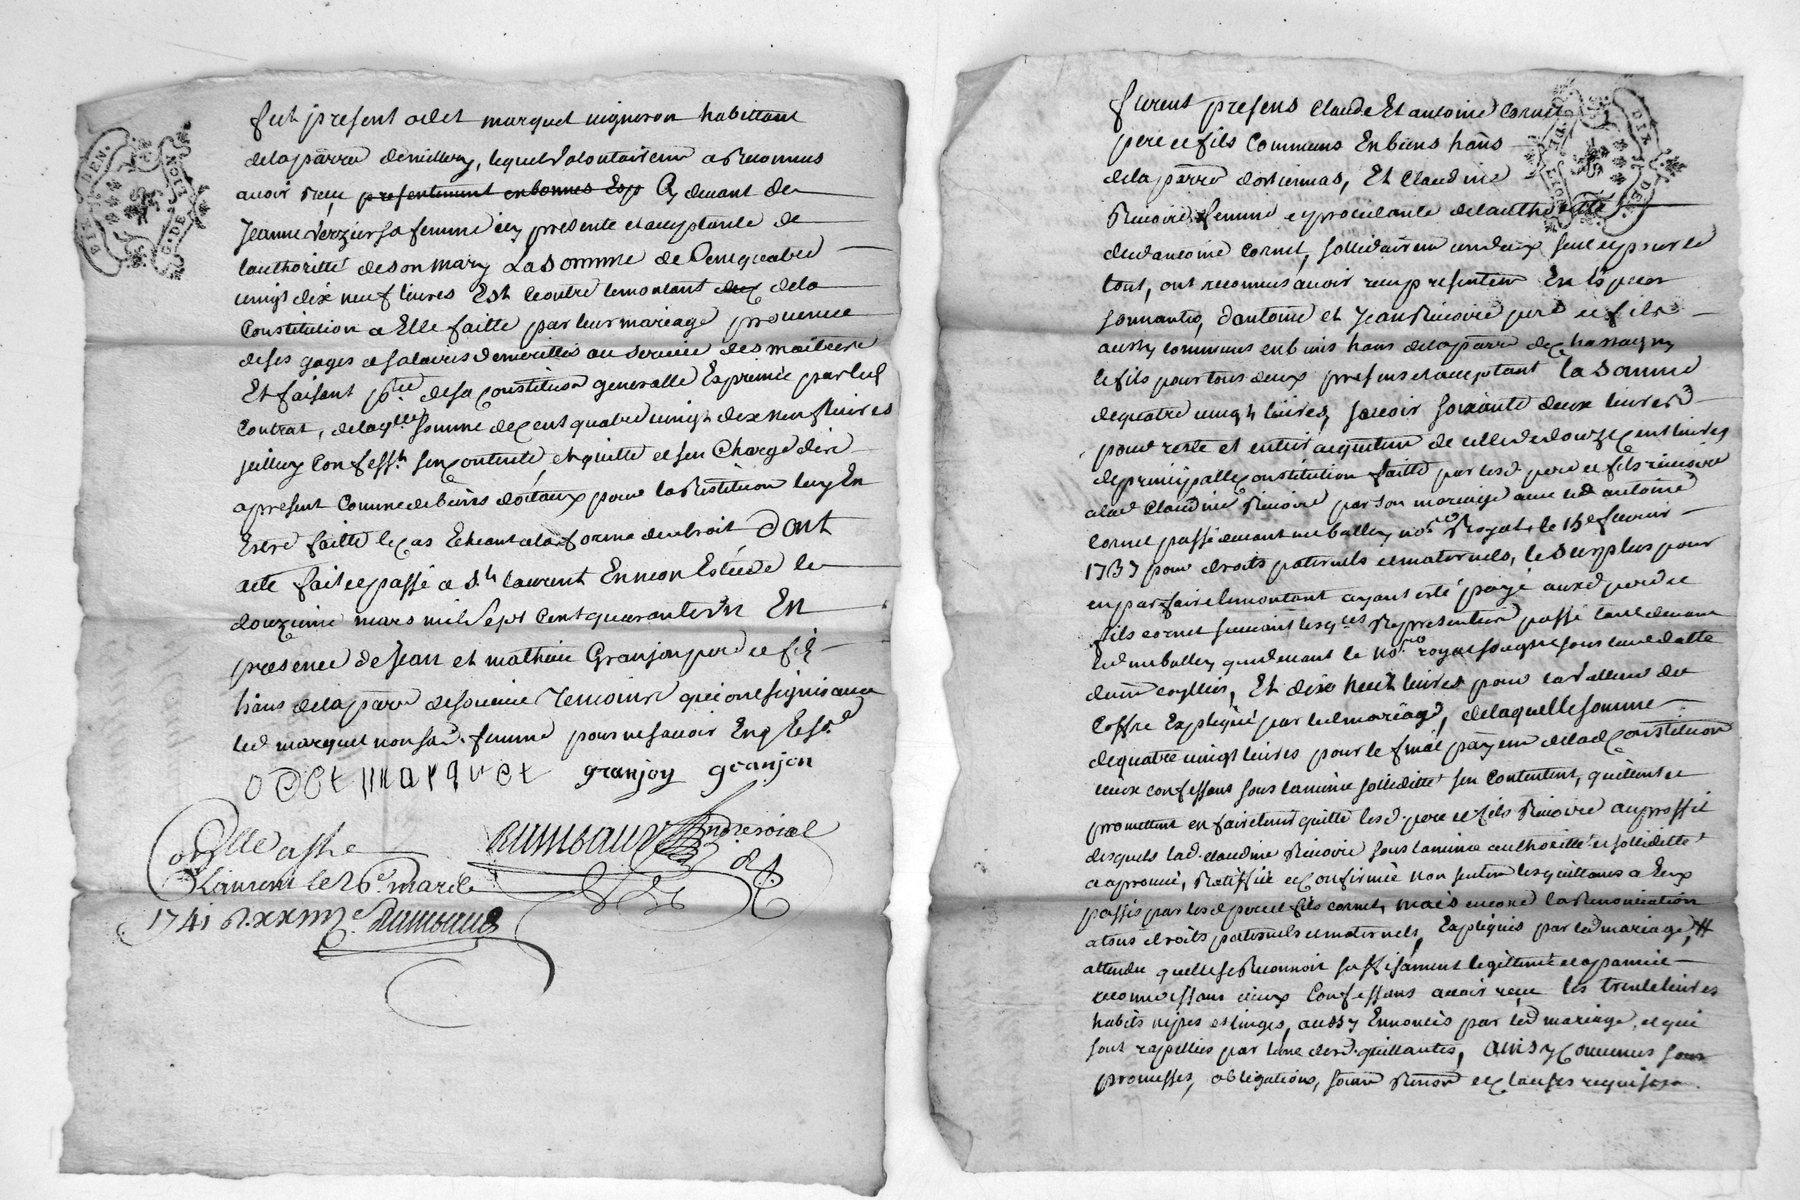 fut present odet marquet vigneron habittant
de la parre de millery, lequel volontairem a Reconnus
avoir reçu presentement en bonnes Esp cy devant de
Jeanne Verzier sa femme icy presente et acceptante de
l'authoritté de son mary La Somme de Cent quatre
vingt dix neuf livres Est le outre le montant de la
Constitution a Elle faitte par leur mariage provenue
de ses gages et salaires au service des maitres
Et faisant ptie de sa Constitution generalle Exprimée par led
Contrat, de laqlle somme de cent quatre vingt dix neuf livres
Confesst sen contente, et quitte et sen Charge des
a present Comme de biens dottaux pour la Restitution luy En
Estre faitte le cas Echeant a la forme du droit Dont
acte fait et passé a St laurent le
douzieme mars mil Sept Cent quarante un En
presence de Jean et mathieu Granjon pere et fils
hans de la parre de temoins qui ont signés avec
led marquet non sad. femme pour ne savoir Enq Et so.
odet marquet granjon granjon
Collé a ste
laurent le 26e mars
1741
furent presens Claude Et antoine Cornet
pere et fils Communs En biens hans
de la parre dorlienas, Et Claudine
Rivoire femme et procedante de lauthoritté
dud antoine Cornet, sollidairem un deux seul et pour le
tout, ont reconnus avoir reçu presentem En Especes
sonnantes, dantoine et Jean Rivoire pere et fils
aussy communs en biens hans de la parre de chassagny
le fils pour tous deux present et acceptant la Somme
de quatre vingt livres, sçavoir soixante deux livres
pour reste et entier acquittem de celle de douze cent livres
de principalle constitution faitte par lesd. pere et fils rivoire
a lad Claudine Rivoire par son mariage avec led antoine
Cornet passé devant me balley nore Royal le 15e fevrier
1737 pour droits paternels et maternels, le surplus pour
en parfaire le montant ayant esté payé auxd pere et
fils cornet suivant les qces passé tant devant
led me balley que devant le nore royal soussigné sous leur datte
Et dix huit livres pour la valleur du
Coffre Expliqué par led mariage, de laquelle somme
de quatre vingt livres pour le final payem de lad Constitution
iceux confessans sous la meme sollidité sen contentent, quittent et
promettent en faire tenir quitte lesd. pere et fils Rivoire au proffit
desquels lad. claudine Rivoire sous la meme authoritté et sollidité
a aprouvé, Ratiffié et Confirmée non seulem les quittances a Eux
passées par lesd pere et fils cornet, mais encore la Renonciation
a tous droits paternels et maternels, Expliqués par led mariage,
attendu quelle se Reconnoit suffisament legittimée et apanée
reconnoissans iceux Confessans avoir reçu les trente livres
habits nipes et linges, aussy Ennoncés par led mariage, et qui
sont rapellés par lune desd. quittances, ainsy Convenus sous
promesses, obligations, soum Renon et clauses requises.